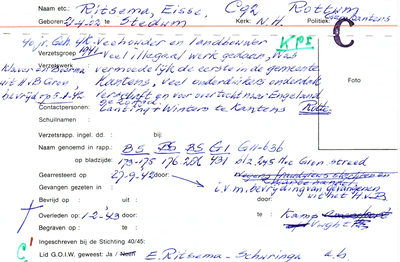 Naam etc.: Ritsema, Eisse, Cg2 Rottum
Geboren: 21-4-02 te Stedum Kerk: N.H. Politiek: Gem. Kantens
40 jr, Geh. 4K Veehouder en landbouwer
KPE C
Verzetsgroep 1941 Veel illegaal werk gedaan, was
Verzetswerk vermoedelijk de eerste in de gemeente
uit HvB Gron Kantens, veel onderduikers onderdak
bevrijd op verschaft en voor overtocht naar Engeland
gezorgd. Foto
Contactpersonen: Lantinga + Winters te Kantens Rott.
Schuilnaam:
Verzetsrapp. ingel. dd. : bij:
Naam genoemd in rapp.: BS BS BS G1 G11-636
op bladzijde: 173-175 176 206 431 Gron
Gearresteerd op 27-9-42 door:
Gevangen gezeten in : i.v.m. bevrijding van gevangenen
uit het H.v.B.
Bevrijd op : uit : door:
Overleden op : 1-2-43 door: te : Kamp
Vught
Begraven op : te :
Ingeschreven bij de Stichting 40/45:
Lid G.O.I.W. geweest: Ja / Neen E. Ritsema-Schuringa a.b.